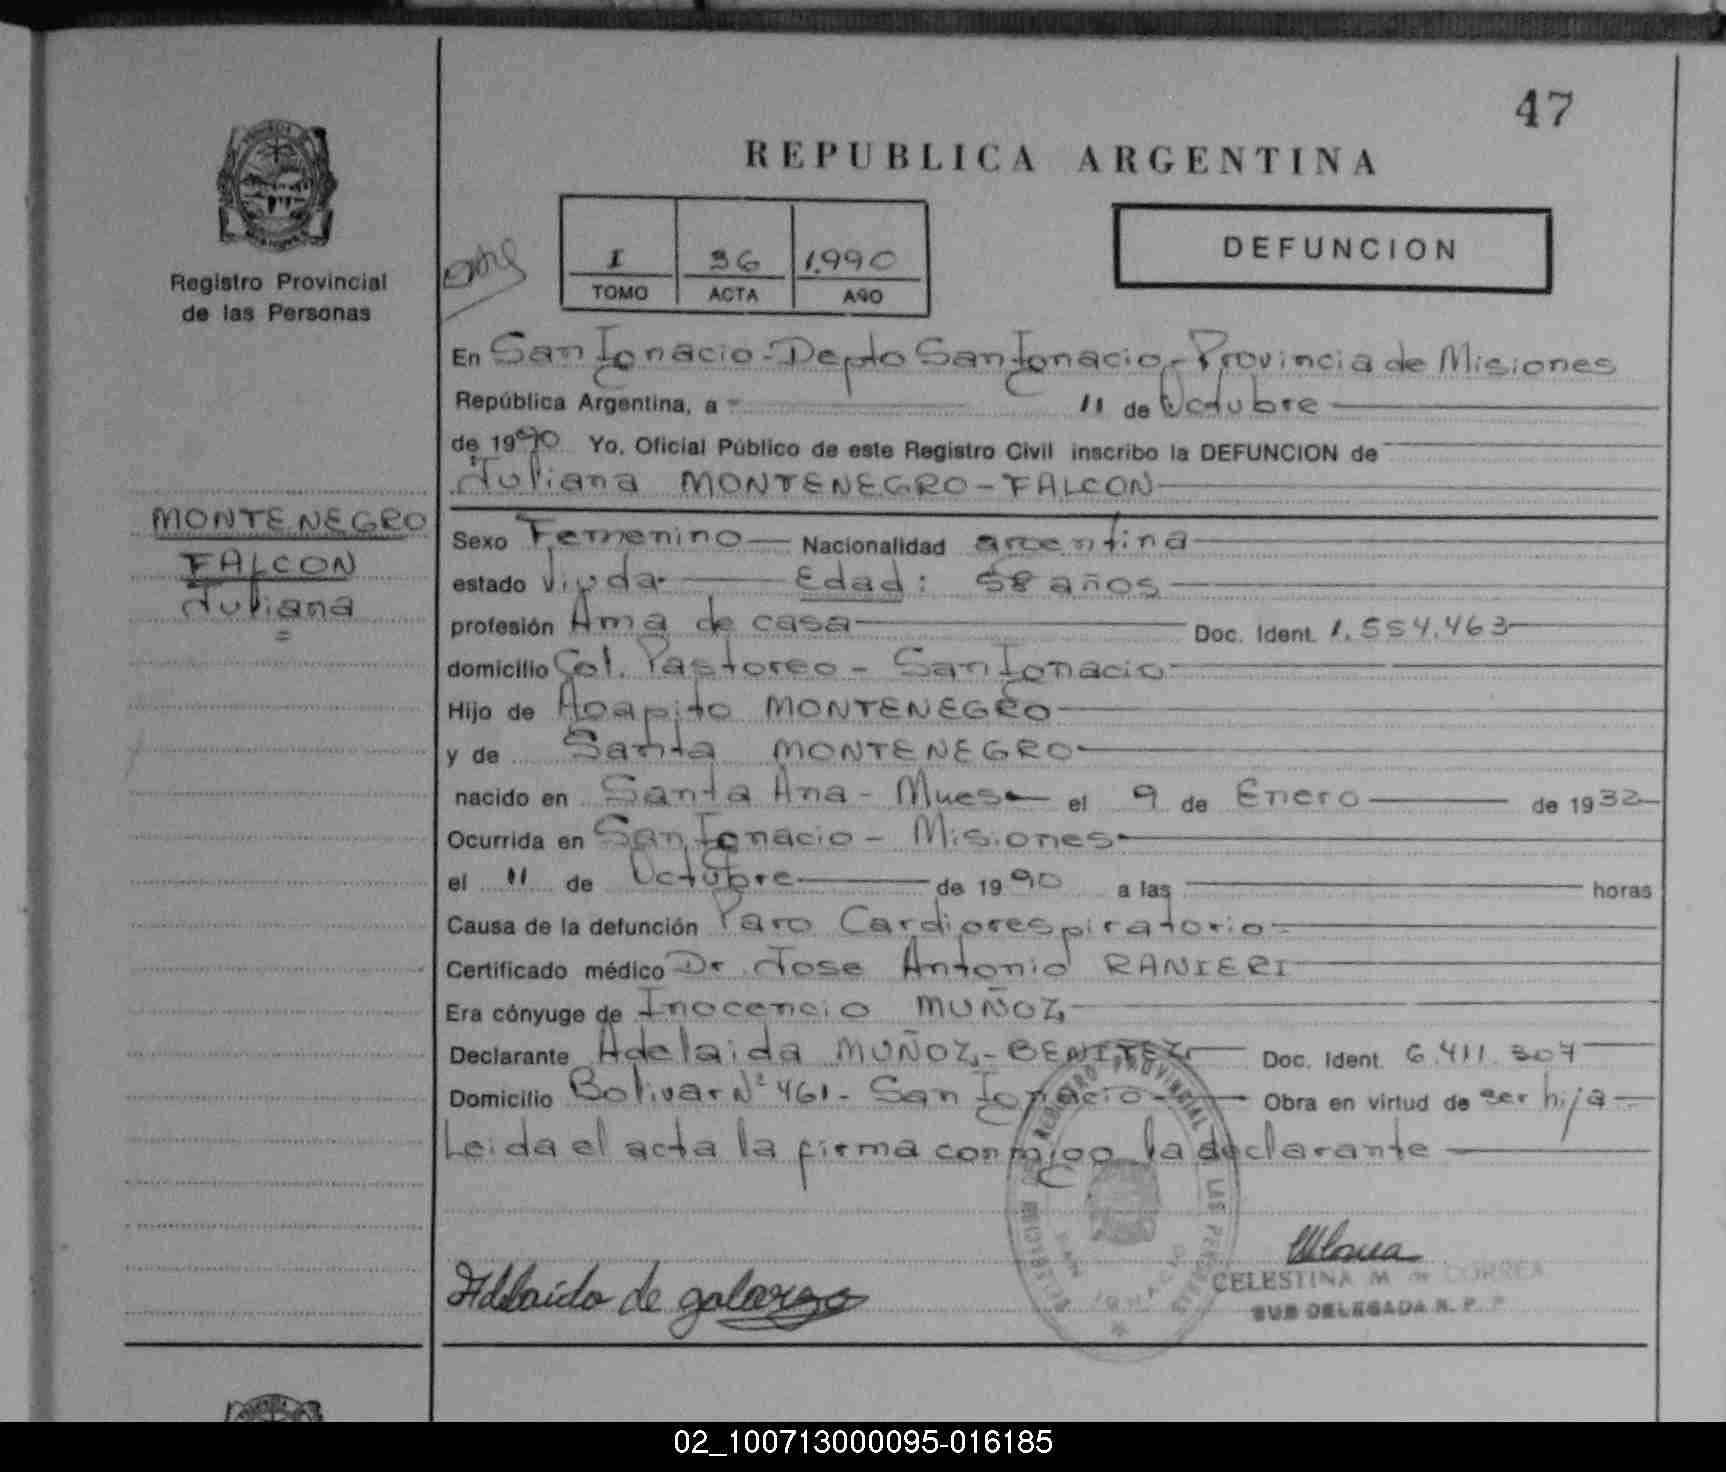 47
REPUBLICA ARGENTINA
Registro Provincial
de las Personas
I 36 1.990
TOMO ACTA AÑO
DEFUNCION
En San Ignacio-Depto San Ignacio-Provincia de Misiones
República Argentina, a 11 de Octubre
de 1990 Yo, Oficial Público de este Registro Civil inscribo la DEFUNCION de
Juliana MONTENEGRO-FALCON
MONTENEGRO
FALCON
Juliana
Sexo Femenino Nacionalidad argentina
estado Viuda Edad: 58 años
profesión Ama de casa Doc. Ident. 1.554.463
domicilio Col. Pastoreo - San Ignacio
Hijo de Agapito MONTENEGRO
y de Santa MONTENEGRO
nacido en Santa Ana - Mnes el 9 de Enero de 1932
Ocurrida en San Ignacio - Misiones
el 11 de Octubre de 1990 a las horas
Causa de la defunción Paro Cardiorespiratorio
Certificado médico Dr. Jose Antonio RANIERI
Era cónyuge de Inocencio MUÑOZ
Declarante Adelaida MUÑOZ-BENITEZ Doc. Ident. 6.411.307
Domicilio Bolivar Nº 461- San Ignacio Obra en virtud de ser hija
Leida el acta la firma conmigo la declarante
REGISTRO PROVINCIAL DE LAS PERSONAS
SAN IGNACIO
Adelaida de galarza
CELESTINA M. de CORREA
SUB DELEGADA R. P. P.
02_100713000095-016185